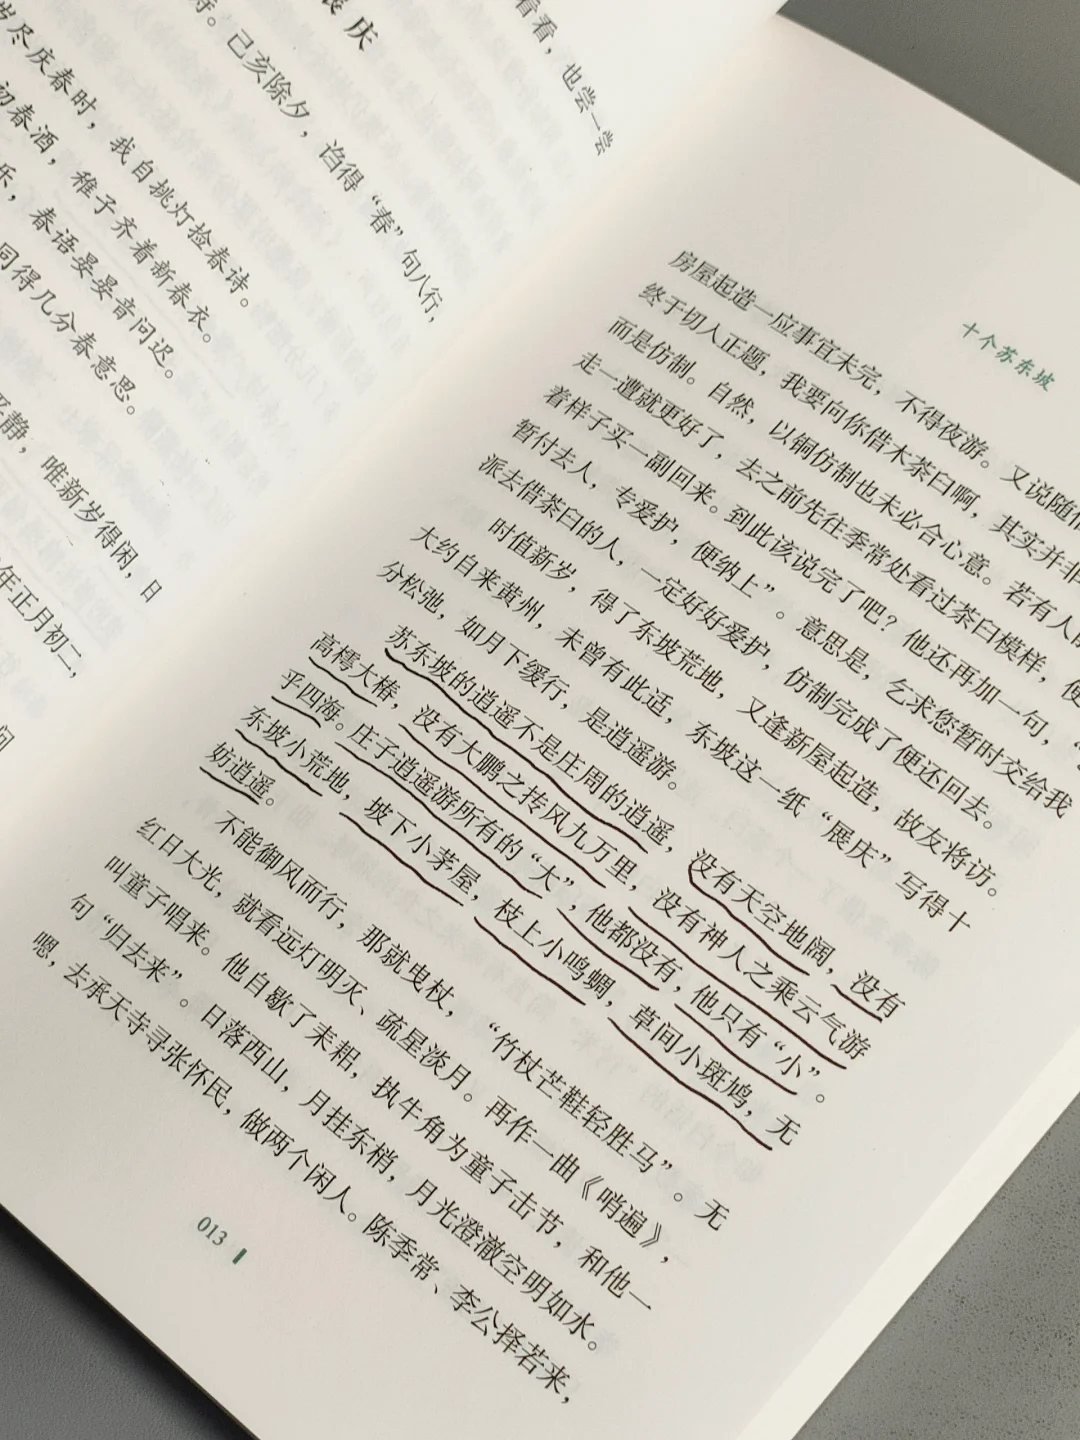 展庆
看看，也尝一尝
诗。己亥除夕，诌得“春”句八行，
岁尽庆春时，我自挑灯捡春诗。
初春酒，稚子齐着新春衣。
乐，春语晏晏音问迟。
同得几分春意思。
平静，唯新岁得闲，日
年正月初二，
问
十个苏东坡
房屋起造一应事宜未完，不得夜游。又说随信
终于切入正题，我要向你借木茶臼啊，其实并非
而是仿制。自然，以铜仿制也未必合心意。若有人
走一遭就更好了，去之前先往季常处看过茶臼模样，便
着样子买一副回来。到此该说完了吧？他还再加一句，“
暂付去人，专爱护，便纳上”。意思是，乞求您暂时交给我
派去借茶臼的人，一定好好爱护，仿制完成了便还回去。
时值新岁，得了东坡荒地，又逢新屋起造，故友将访。
大约自来黄州，未曾有此适，东坡这一纸“展庆”写得十
分松弛，如月下缓行，是逍遥游。
苏东坡的逍遥不是庄周的逍遥，没有天空地阔，没有
高樗大椿，没有大鹏之抟风九万里，没有神人之乘云气游
乎四海。庄子逍遥游所有的“大”，他都没有，他只有“小”。
东坡小荒地，坡下小茅屋，枝上小鸣蜩，草间小斑鸠，无
妨逍遥。
不能御风而行，那就曳杖，“竹杖芒鞋轻胜马”。无
红日大光，就看远灯明灭、疏星淡月。再作一曲《哨遍》，
叫童子唱来。他自歇了耒耜，执牛角为童子击节，和他一
句“归去来”。日落西山，月挂东梢，月光澄澈空明如水。
嗯，去承天寺寻张怀民，做两个闲人。陈季常、李公择若来，
013